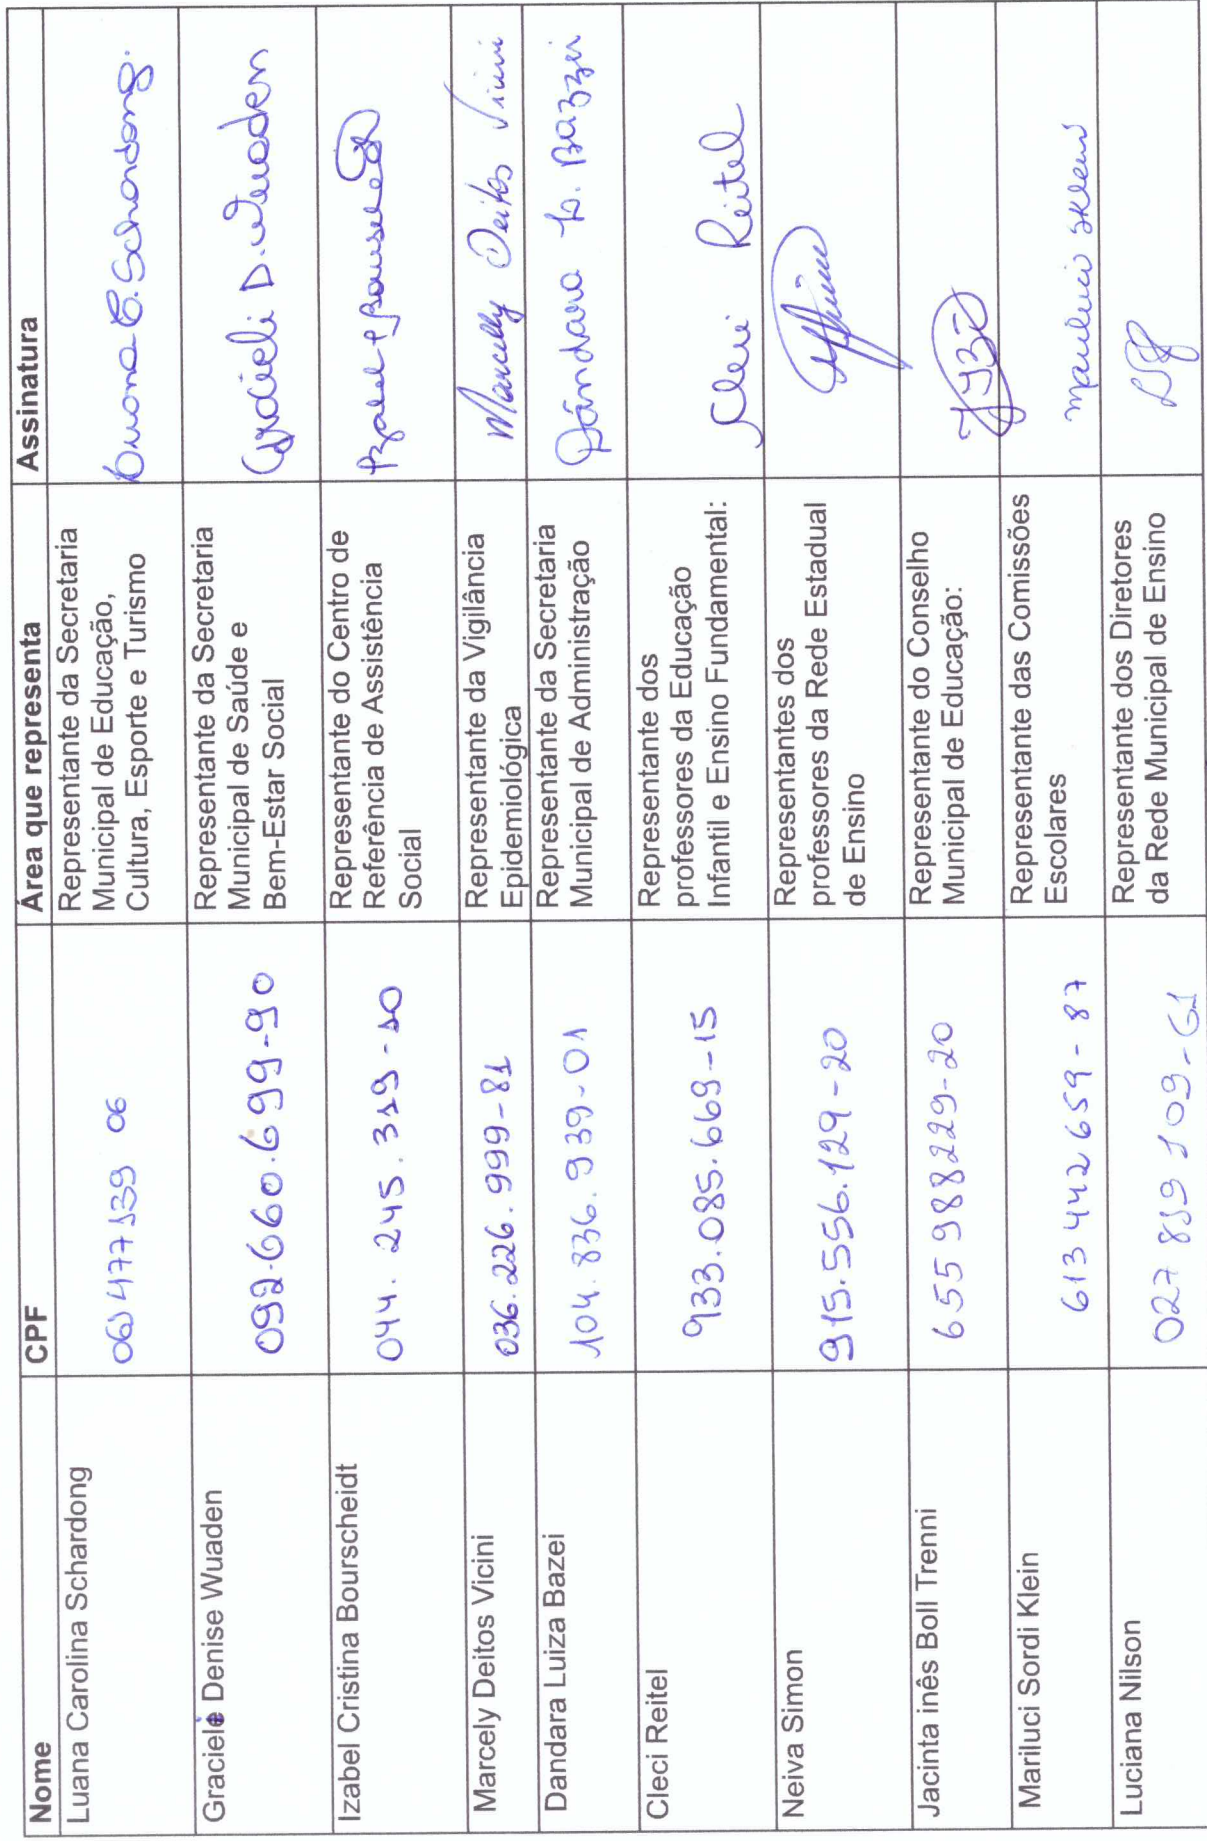 Nome CPF Área que representa Assinatura
Luana Carolina Schardong 061 477 139 06 Representante da Secretaria
Municipal de Educação,
Cultura, Esporte e Turismo
Luana C. Schardong.
Graciele Denise Wuaden 092.660.699-90 Representante da Secretaria
Municipal de Saúde e
Bem-Estar Social
Gracieli D. Wuaden
Izabel Cristina Bourscheidt 044. 245. 319 - 10 Representante do Centro de
Referência de Assistência
Social
Marcely Deitos Vicini 036. 226. 999 - 81 Representante da Vigilância
Epidemiológica
Marcelly Deitos Vicini
Dandara Luiza Bazei 104. 836. 939-01 Representante da Secretaria
Municipal de Administração
Dándara L. Bazzei
Cleci Reitel 933.085.669-15 Representante dos
professores da Educação
Infantil e Ensino Fundamental:
Cleci Reitel
Neiva Simon 915.556.129-20 Representantes dos
professores da Rede Estadual
de Ensino
Jacinta inês Boll Trenni 655 988229-20 Representante do Conselho
Municipal de Educação:
Mariluci Sordi Klein 613 442 659 - 87 Representante das Comissões
Escolares
Mariluci Sklein
Luciana Nilson 027 819 109-61 Representante dos Diretores
da Rede Municipal de Ensino